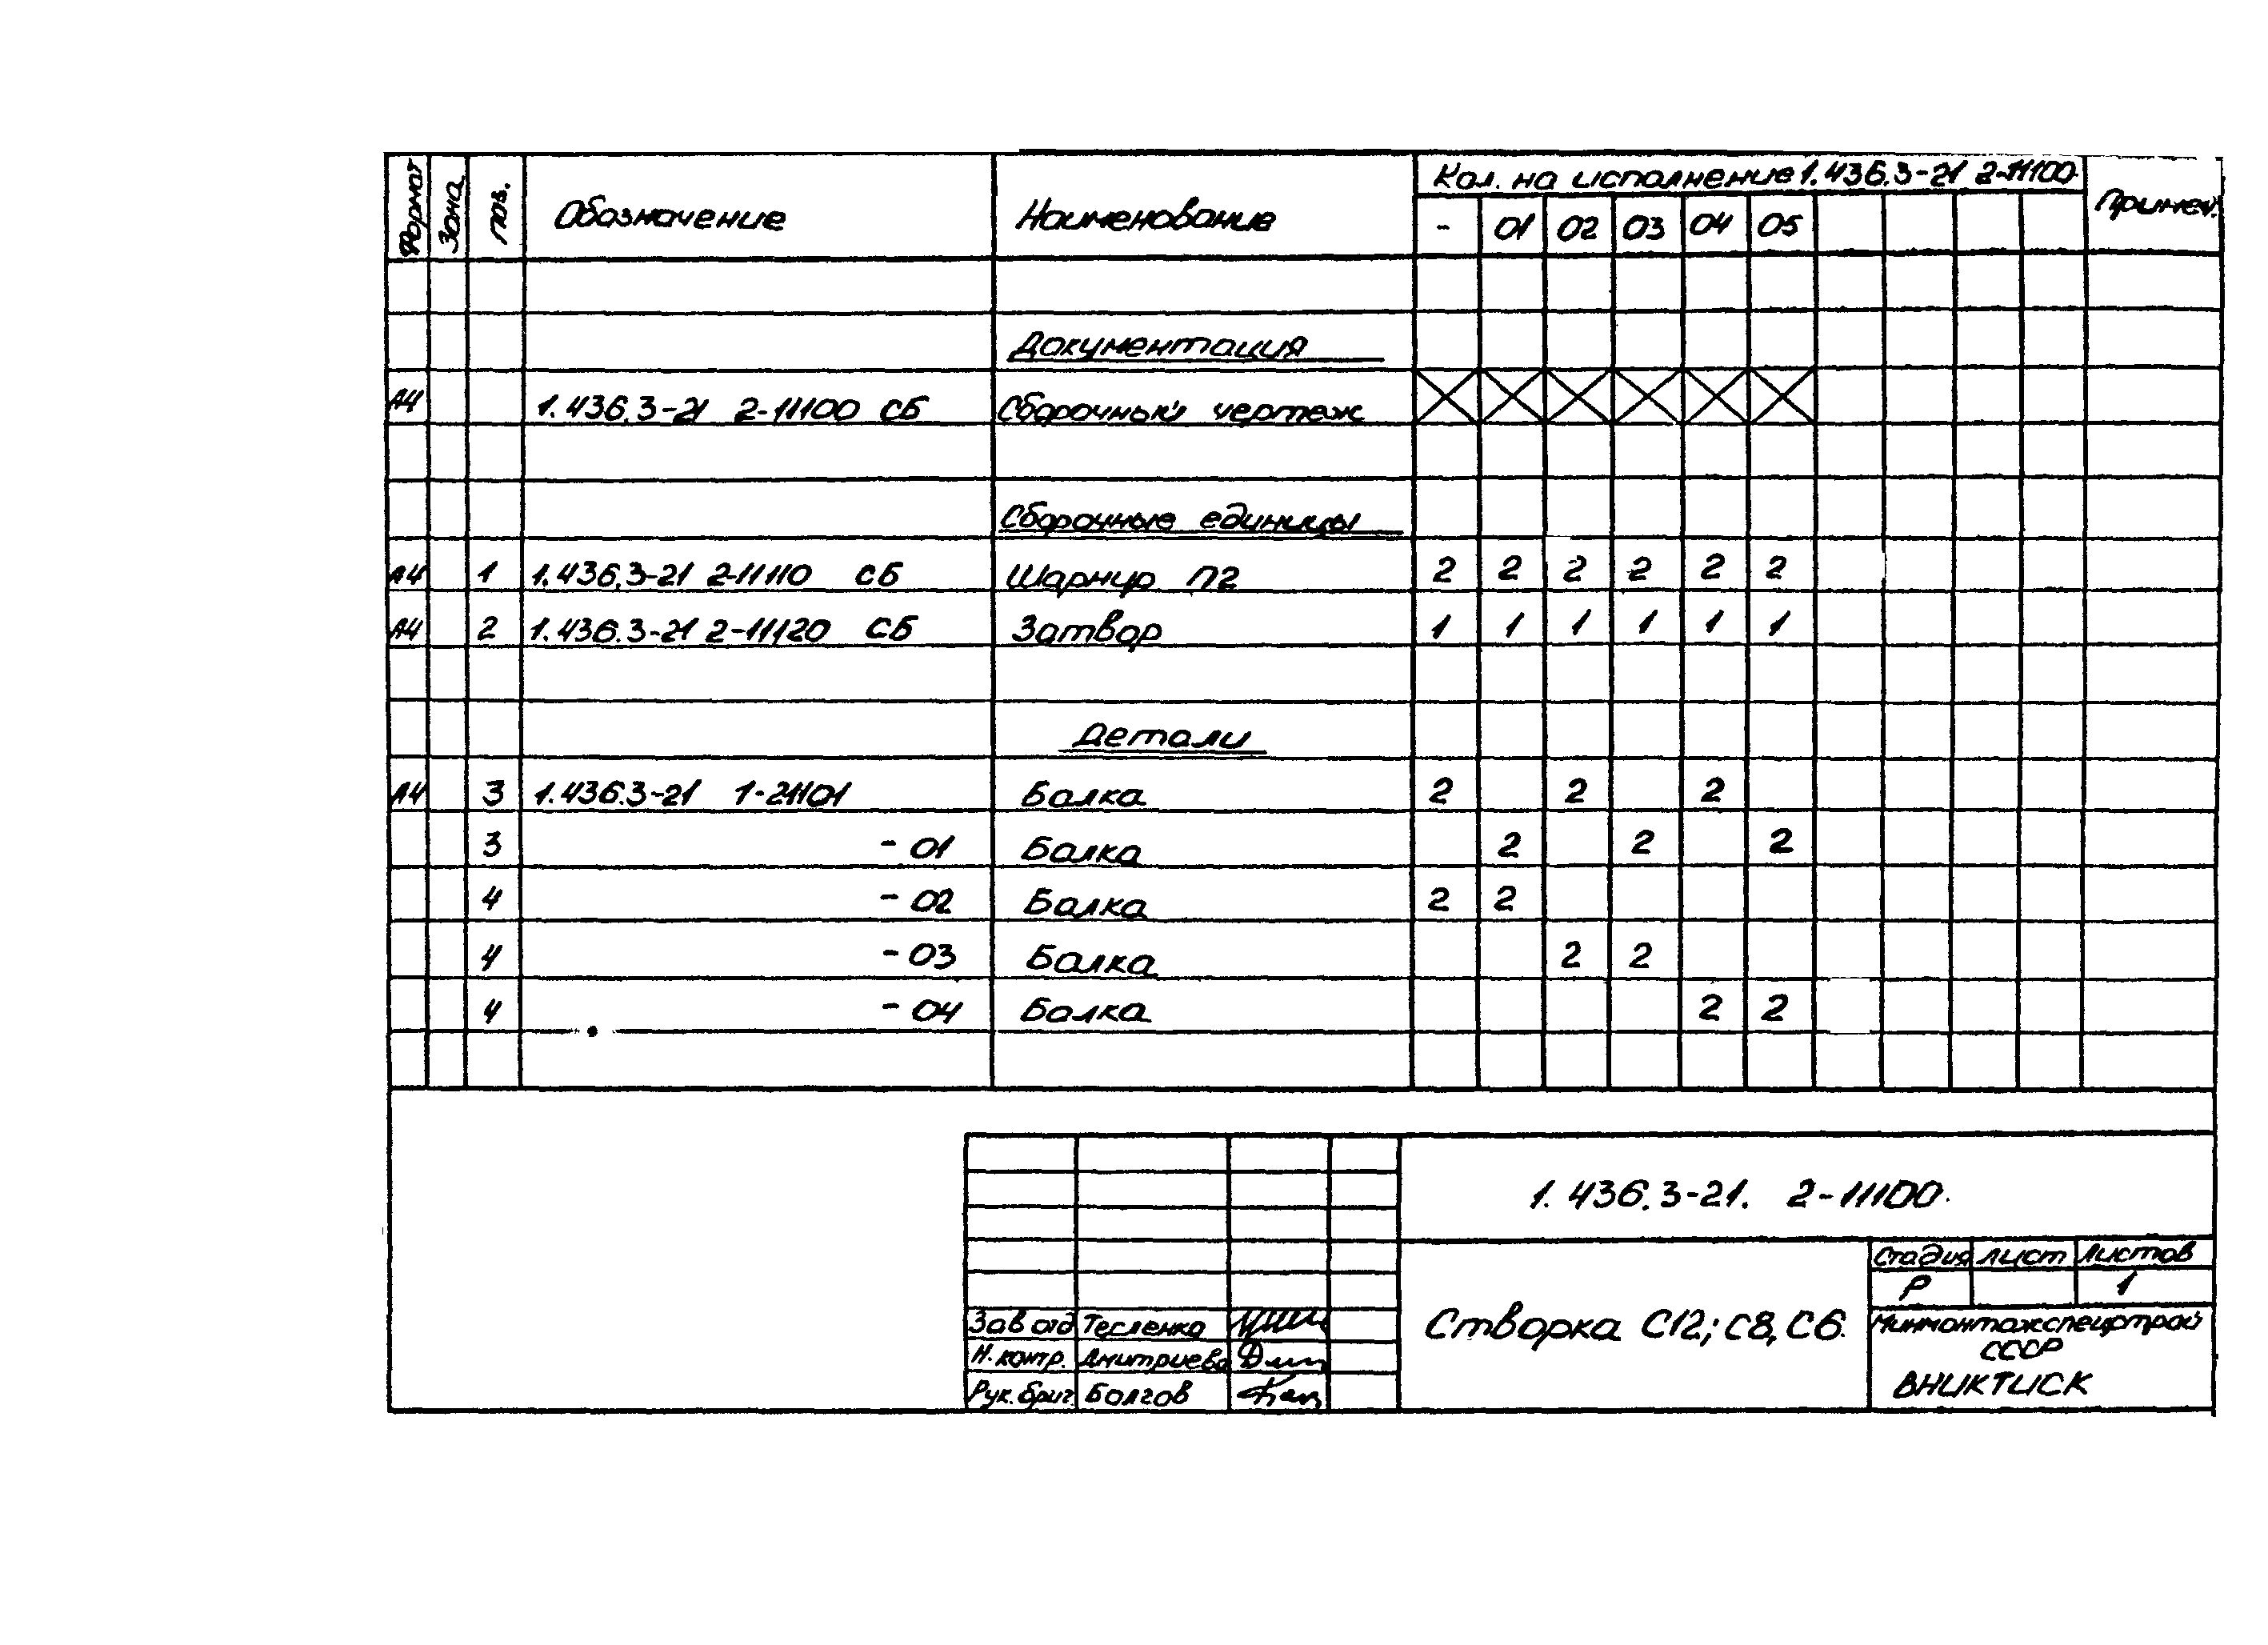 Формат Зона Поз. Обозначение Наименование Кол. на исполнение 1.436.3-21 2-11100 Примеч.
- 01 02 03 04 05
Документация
А4 1.436.3-21 2-11100 СБ Сборочный чертеж
Сборочные единицы
А4 1 1.436.3-21 2-11110 СБ Шарнир П2 2 2 2 2 2 2
А4 2 1.436.3-21 2-11120 СБ Затвор 1 1 1 1 1 1
Детали
А4 3 1.436.3-21 1-21101 Балка 2 2 2
3 - 01 Балка 2 2 2
4 - 02 Балка 2 2
4 - 03 Балка 2 2
4 - 04 Балка 2 2
1.436.3-21. 2-11100.
Створка С12; С8, С6.
Стадия Лист Листов
Р 1
Минмонтажспецстрой
СССР
ВНИКТИСК
Зав отд Тесленко
Н. контр. Дмитриева
Рук. бриг Болгов